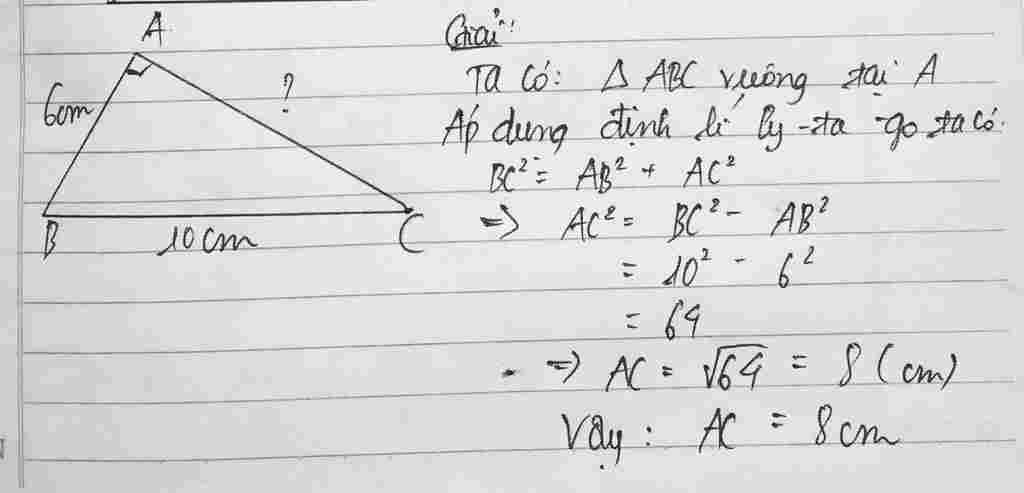 A
6cm
?
B
10cm
C
Giải:
Ta có: Δ ABC vuông tại A
Áp dung định lí Py-ta-go ta có:
BC² = AB² + AC²
=> AC² = BC² - AB²
= 10² - 6²
= 64
=> AC = √64 = 8 (cm)
Vậy: AC = 8cm